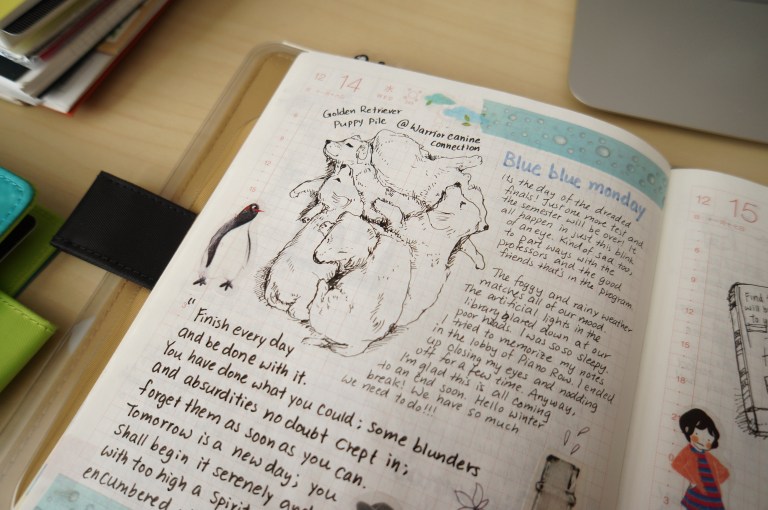 12 14
Golden Retriever
Puppy Pile @ Warrior canine
connection
Blue blue monday
It's the day of the dreaded
finals! Just one more test and
the semester will be over! It
all happen in just this blink
of an eye. Kind of sad too,
to part ways with the
professors and the good
friends that's in the program
The foggy and rainy weather
matches all of our mood.
The artificial lights in the
library glared down at our
poor heads. I was so so sleepy.
I tried to memorize my notes
in the lobby of Piano Row. I ended
up closing my eyes and nodding
off for a few time. Anyway,
I'm glad this is all coming
to an end soon. Hello winter
break! We have so much
we need to do!!!
"Finish every day
and be done with it.
You have done what you could; some blunders
and absurdities no doubt crept in;
forget them as soon as you can.
Tomorrow is a new day; you
shall begin it serenely and
with too high a spirit
encumbered
12 15
Find
will b
to